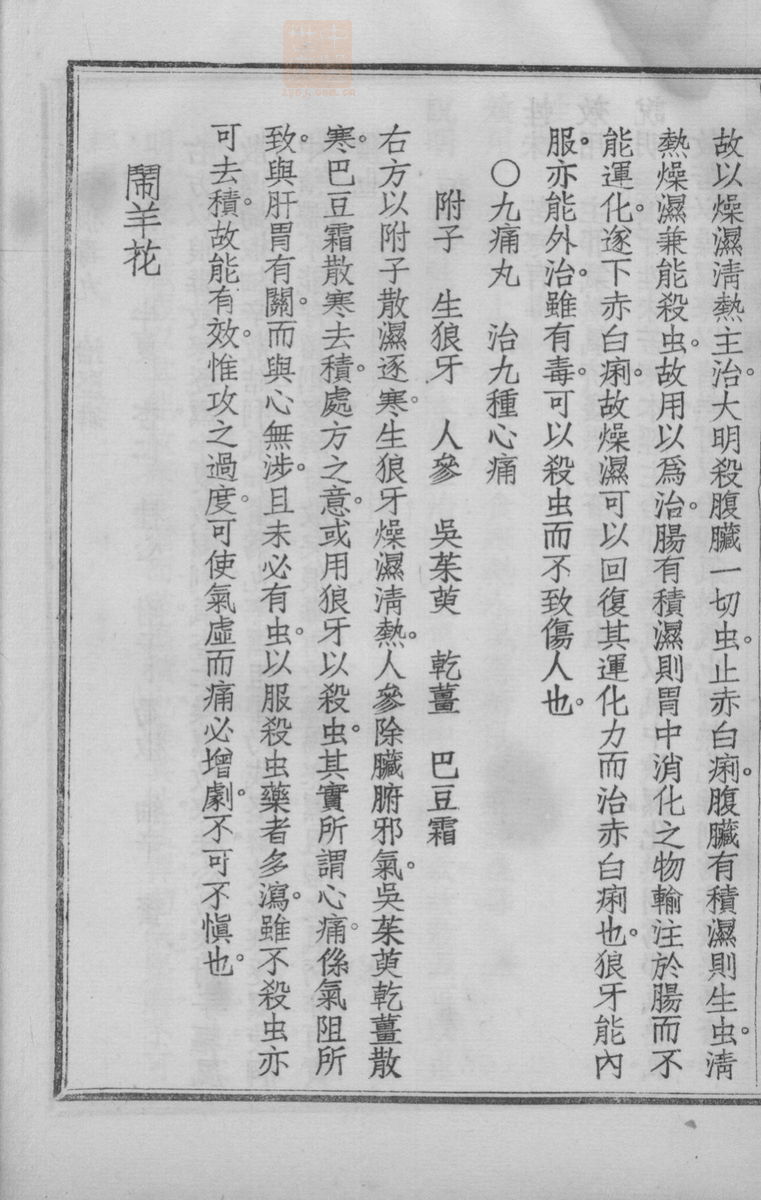 故以燥濕淸熱主治。大明殺腹臟一切虫。止赤白痢。腹臟有積濕則生虫。淸
熱燥濕兼能殺虫。故用以爲治。腸有積濕則胃中消化之物輸注於腸而不
能運化。遂下赤白痢。故燥濕可以回復其運化力而治赤白痢也。狼牙能內
服。亦能外治。雖有毒。可以殺虫而不致傷人也。
〇九痛丸　治九種心痛
附子　生狼牙　人參　吳茱萸　乾薑　巴豆霜
右方以附子散濕逐寒。生狼牙燥濕淸熱。人參除臟腑邪氣。吳茱萸乾薑散
寒。巴豆霜散寒去積。處方之意。或用狼牙以殺虫。其實所謂心痛。係氣阻所
致。與肝胃有關。而與心無涉。且未必有虫。以服殺虫藥者多瀉。雖不殺虫亦
可去積。故能有效。惟攻之過度。可使氣虛而痛必增劇。不可不愼也。
鬧羊花